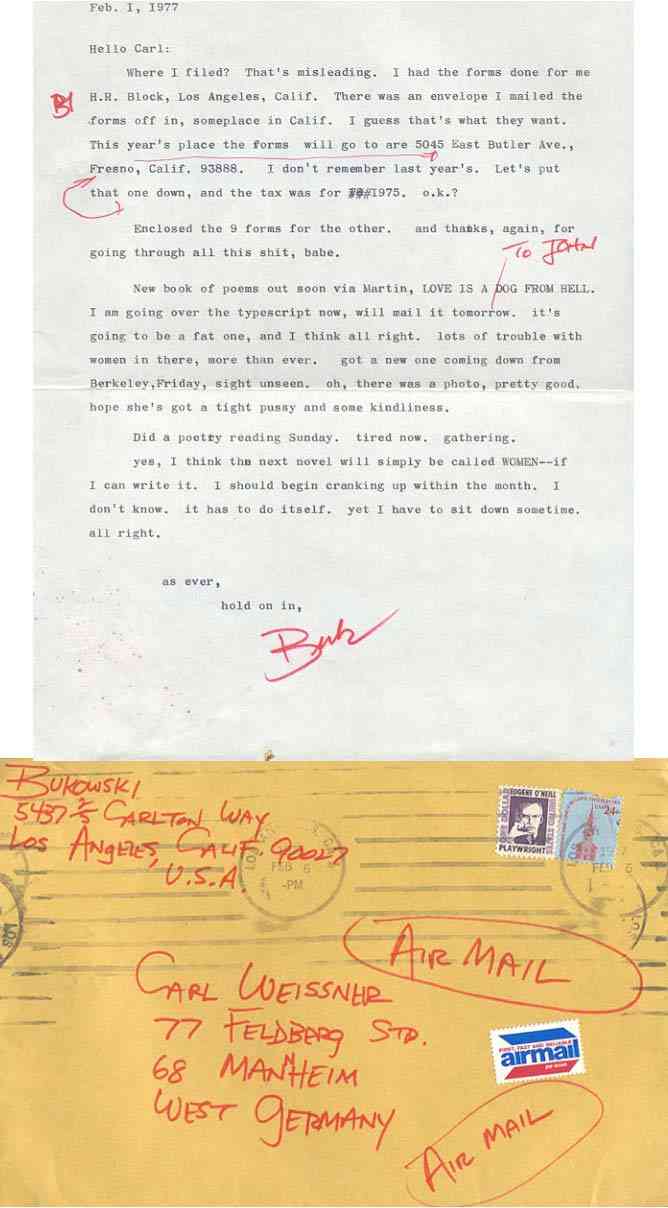 Feb. 1, 1977
Hello Carl:
Where I filed? That's misleading. I had the forms done for me
H.R. Block, Los Angeles, Calif. There was an envelope I mailed the
forms off in, someplace in Calif. I guess that's what they want.
This year's place the forms will go to are 5045 East Butler Ave.,
Fresno, Calif. 93888. I don't remember last year's. Let's put
that one down, and the tax was for 1975. o.k.?
Enclosed the 9 forms for the other. and thanks, again, for
going through all this shit, babe.
TO JOHN
New book of poems out soon via Martin, LOVE IS A DOG FROM HELL.
I am going over the typescript now, will mail it tomorrow. it's
going to be a fat one, and I think all right. lots of trouble with
women in there, more than ever. got a new one coming down from
Berkeley,Friday, sight unseen. oh, there was a photo, pretty good.
hope she's got a tight pussy and some kindliness.
Did a poetry reading Sunday. tired now. gathering.
yes, I think the next novel will simply be called WOMEN--if
I can write it. I should begin cranking up within the month. I
don't know. it has to do itself. yet I have to sit down sometime.
all right.
as ever,
hold on in,
Buk
BUKOWSKI
5437 2/5 CARLTON WAY
LOS ANGELES, CALIF 90027
U.S.A.
FEB 6
-PM
EUGENE O'NEILL
PLAYWRIGHT
24c
FEB 6
AIR MAIL
CARL WEISSNER
77 FELDBERG STD.
68 MANNHEIM
WEST GERMANY
FIRST, FAST AND RELIABLE
airmail
AIR MAIL